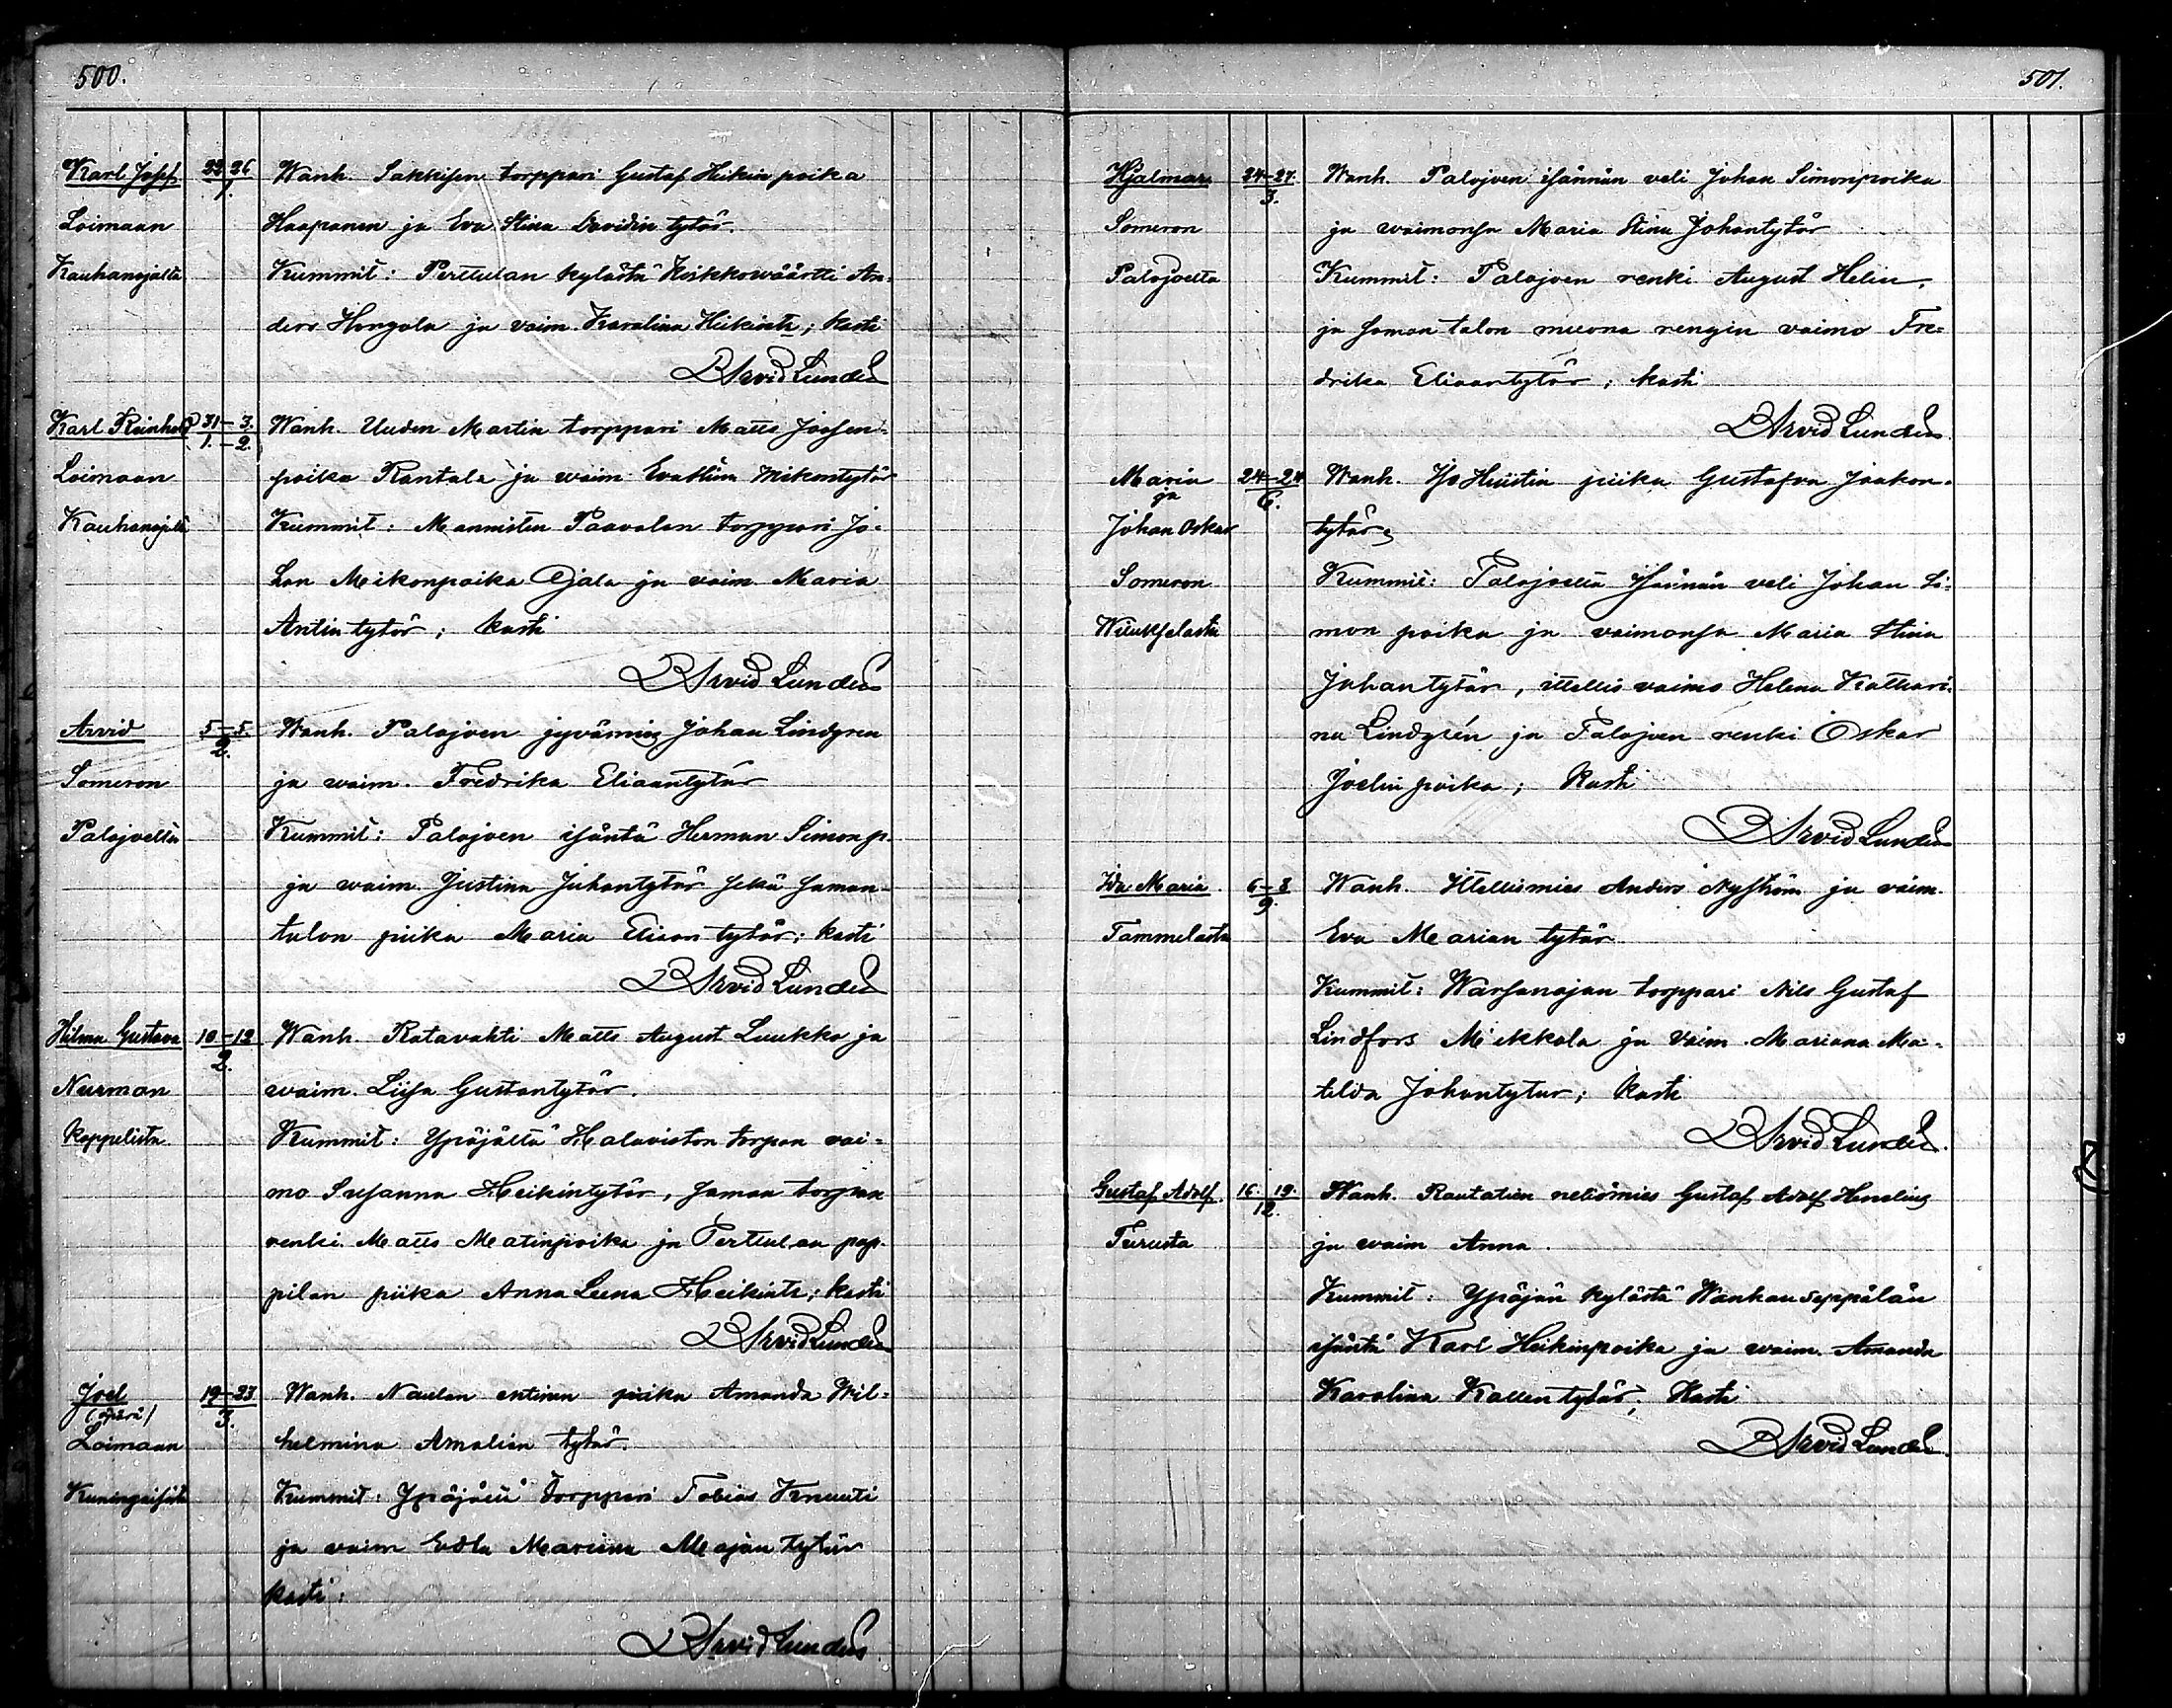 500.
Karl Josef. 22 26 Wanh. Sakkisen torppari Gustaf Heikin poika
1.
Loimaan Haapanen ja Eva Stina Davidin tytär.
Kauhanojalta Kummit: Perttulan kylästä Keikkowäärtti An=
ders Hongola ja vaim. Karolina Heikint:, kasti
B Arvid Lundén
Karl Reinhold 31 – 3. Wanh. Uuden Martin torppari Matts Joosen=
1. – 2.
Loimaan poika Rantala ja waim Eva Stina Mikontytär
Kauhanojalta Kummit: Mannisten Paavolan torppari Jo=
han Mikonpoika Ojala ja vaim. Maria
Antintytär; kasti
B Arvid Lundén
Arvid 5 – 5. Wanh. Palojoen jyvämies Johan Lindgren
2.
Someron ja waim. Fredrika Eliaantytär
Palojoelta Kummit: Palojoen isäntä Herman Simonp.
ja waim. Justina Juhantytär sekä saman
talon piika Maria Eliaan tytär; kasti
B Arvid Lundén
Hilma Gustava 10 – 12 Wanh. Ratavahti Matts August Luukko ja
2.
Nurman waim. Liisa Gustantytär.
kappelista. Kummit: Ypäjältä Halaviston torpan vai=
mo Susanna Heikintytär, saman torpan
renki Matts Matinpoika ja Perttulan pap=
pilan piika Anna Leena Heikint:; kasti
B Arvid Lundén
Joel 19 – 23 Wanh. Naulan entinen piika Amanda Wil=
(äpärä) 3.
Loimaan helmina Amalian tytär.
Kummit: Ypäjältä torppari Tobias Knuuti
ja vaim Edla Mariana Majan tytär
kasti:
B Arvid Lundén
501.
Hjalmar 24 – 27. Wanh. Palojoen isännän veli Johan Simonpoika
3.
Someron ja waimonsa Maria Stina Johantytär
Palojoelta Kummit: Palojoen renki August Helin,
ja saman talon muona rengin vaimo Fre=
drika Eliaantytär; kasti
B Arvid Lundén.
Maria 24 – 24 Wanh. Iso Hiistin piika Gustafva Jaakon=
ja 6.
Johan Oskar tytär.
Someron Kummit: Palojoelta isännän veli Johan Si=
mon poika ja vaimonsa Maria Stina
Juhantytär, itellis vaimo Helena Kathari=
na Lindgrén ja Palojoen renki Oskar
Joelin poika; Kasti
B Arvid Lundén
Ida Maria. 6 – 8 Wanh. Itellismies Anders Nyström ja vaim.
9.
Tammelasta Eva Marian tytär.
Kummit: Warsanojan torppari Nils Gustaf
Lindfors Mikkola ja vaim. Mariana Ma=
tilda Johantytär; kasti
B Arvid Lundén.
Gustaf Adolf. 16 19. Wanh. Rautatien neliömies Gustaf Adolf Henelius
12.
Turusta ja waim Anna.
Kummit: Ypäjän kylästä Wanhan seppälän
isäntä Karl Heikinpoika ja waim. Amanda
Karolina Kallentytär; Kasti
B Arvid Lundén.